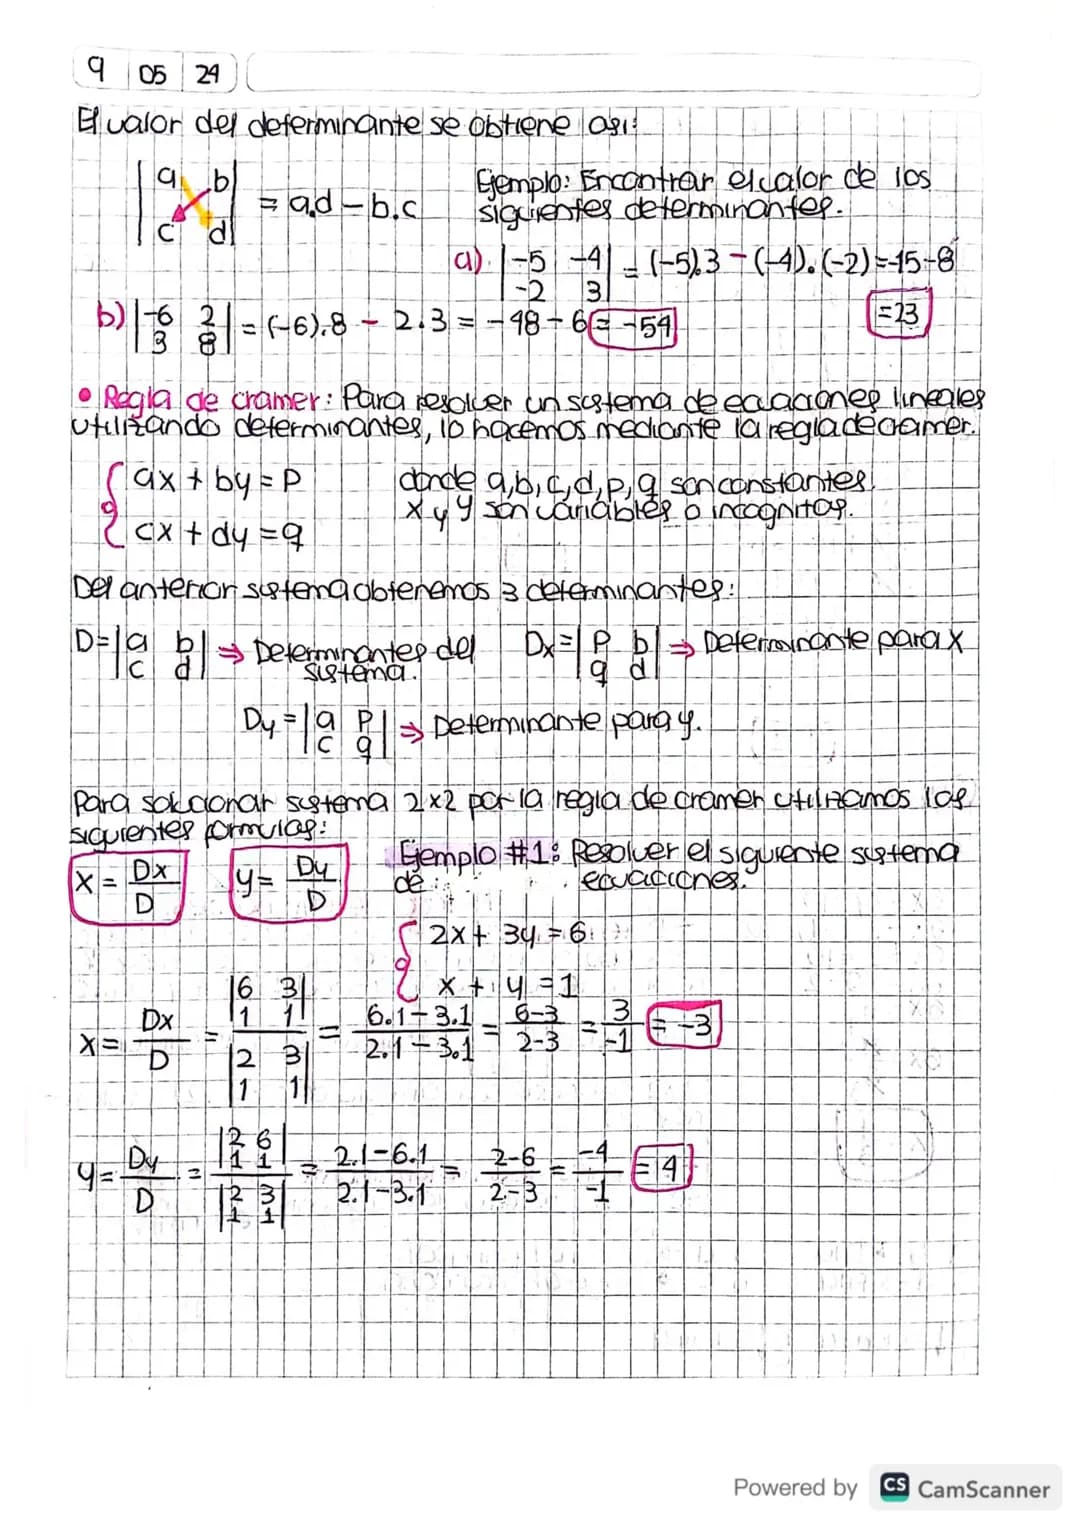 9 05 24
El valor del determinante se obtiene asi:
|a b| = a.d - b.c
|c d|
Ejemplo: Encontrar el valor de los
siguientes determinantes.
a) |-5 -4| = (-5).3 - (-4).(-2) = -15-8
|-2 3|
= 23
b) |-6 2| = (-6).8 - 2.3 = -48-6 = -54
|3 8|
• Regla de cramer: Para resolver un sistema de ecuaciones lineales
utilizando determinantes, lo hacemos mediante la regla de cramer.
{ ax + by = p
cx + dy = q
donde a,b,c,d,p,q son constantes
x y y son variables o incognitas.
Del anterior sistema obtenemos 3 determinantes:
D = |a b| ⇒ Determinantes del
|c d| sistema.
Dx = |p b| ⇒ Determinante para x
|q d|
Dy = |a p| ⇒ Determinante para y.
|c q|
Para solucionar sistema 2x2 por la regla de cramer utilizamos los
siguientes formulas:
x = Dx/D y = Dy/D
Ejemplo #1: Resolver el siguiente sistema
de ecuaciones.
{ 2x + 3y = 6
x + y = 1
x = Dx/D = |6 3; 1 1| / |2 3; 1 1| = 6.1-3.1 / 2.1-3.1 = 6-3 / 2-3 = 3/-1 = -3
y = Dy/D = |2 6; 1 1| / |2 3; 1 1| = 2.1-6.1 / 2.1-3.1 = 2-6 / 2-3 = -4/-1 = 4
Powered by CS CamScanner